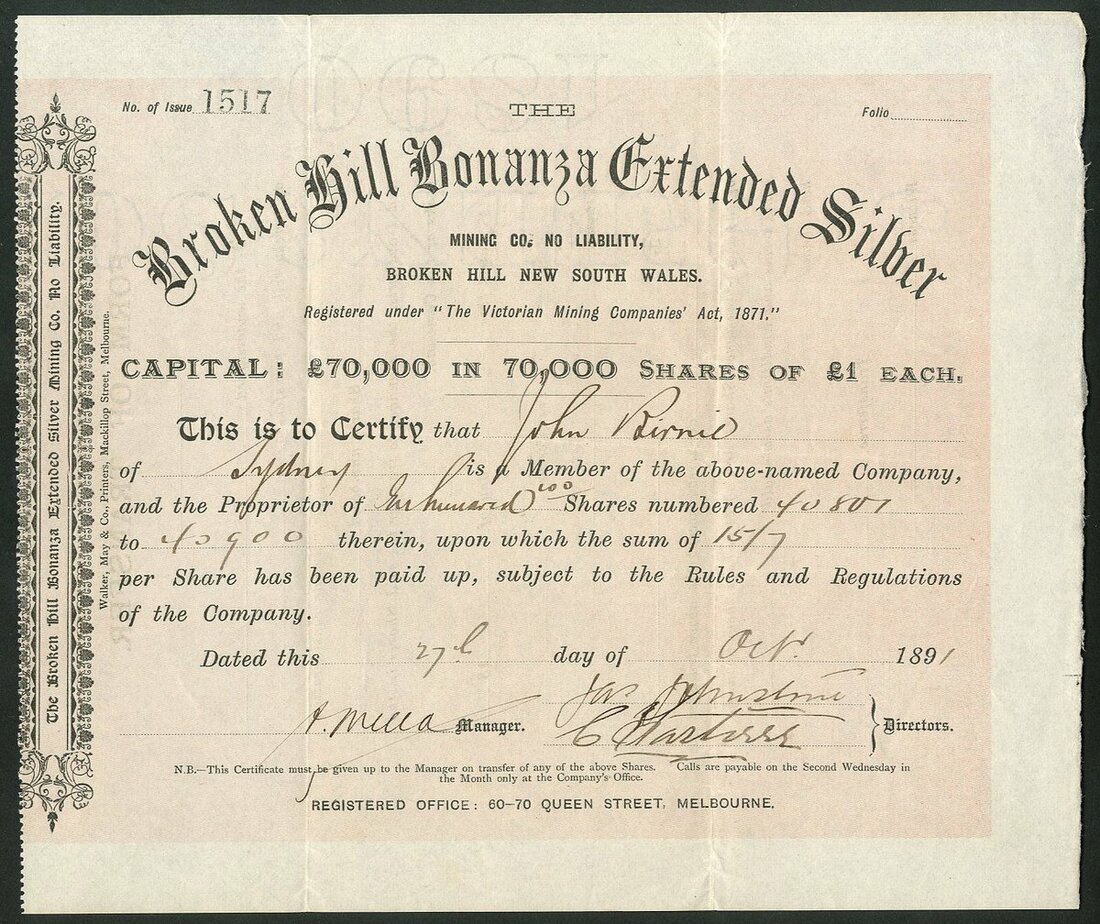 No. of Issue 1517
THE
Folio
Broken Hill Bonanza Extended Silver
MINING CO. NO LIABILITY,
BROKEN HILL NEW SOUTH WALES.
Registered under "The Victorian Mining Companies' Act, 1871."
CAPITAL: £70,000 IN 70,000 SHARES OF £1 EACH.
This is to Certify that John Birnie
of Sydney is a Member of the above-named Company,
and the Proprietor of 100 Shares numbered 40801
to 40900 therein, upon which the sum of 15/7
per Share has been paid up, subject to the Rules and Regulations
of the Company.
Dated this 27th day of Oct. 1891
Jas Johnstone
Manager.
Directors.
N.B.—This Certificate must be given up to the Manager on transfer of any of the above Shares. Calls are payable on the Second Wednesday in
the Month only at the Company's Office.
REGISTERED OFFICE: 60-70 QUEEN STREET, MELBOURNE.
The Broken Hill Bonanza Extended Silver Mining Co. No Liability.
Walker, May & Co., Printers, Mackillop Street, Melbourne.